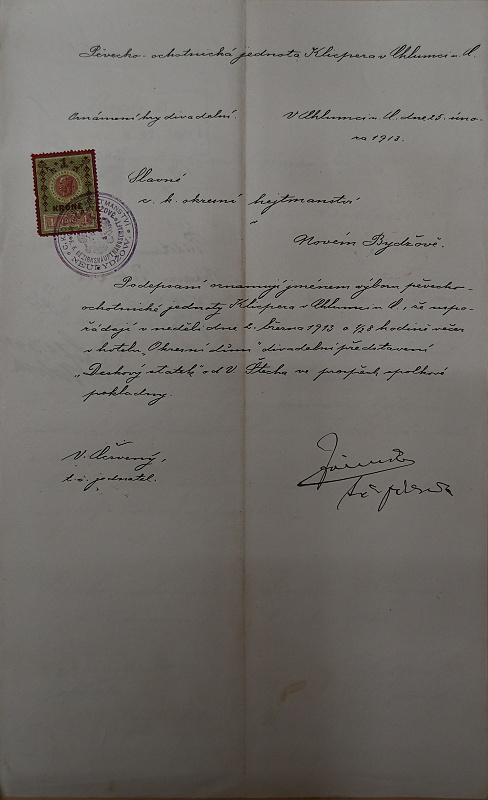 Pěvecko-ochotnická jednota Klicpera v Chlumci n. C.
Oznámení hry divadelní.
V Chlumci n. C. dne 25. úno-
ra 1913.
1
KRONE
1 1
NEUBYDŽOW
Slavné
c. k. okresní hejtmanství
v
Novém Bydžově.
Podepsaní oznamují jménem výboru pěvecko-
ochotnické jednoty Klicpera v Chlumci n. C., že uspo-
řádají v neděli dne 2. března 1913 o ½8 hodině večer
v hotelu „Okresní dům" divadelní představení
„Deskový statek" od V. Štecha ve prospěch spolkové
pokladny.
V. Červený,
t. č. jednatel.